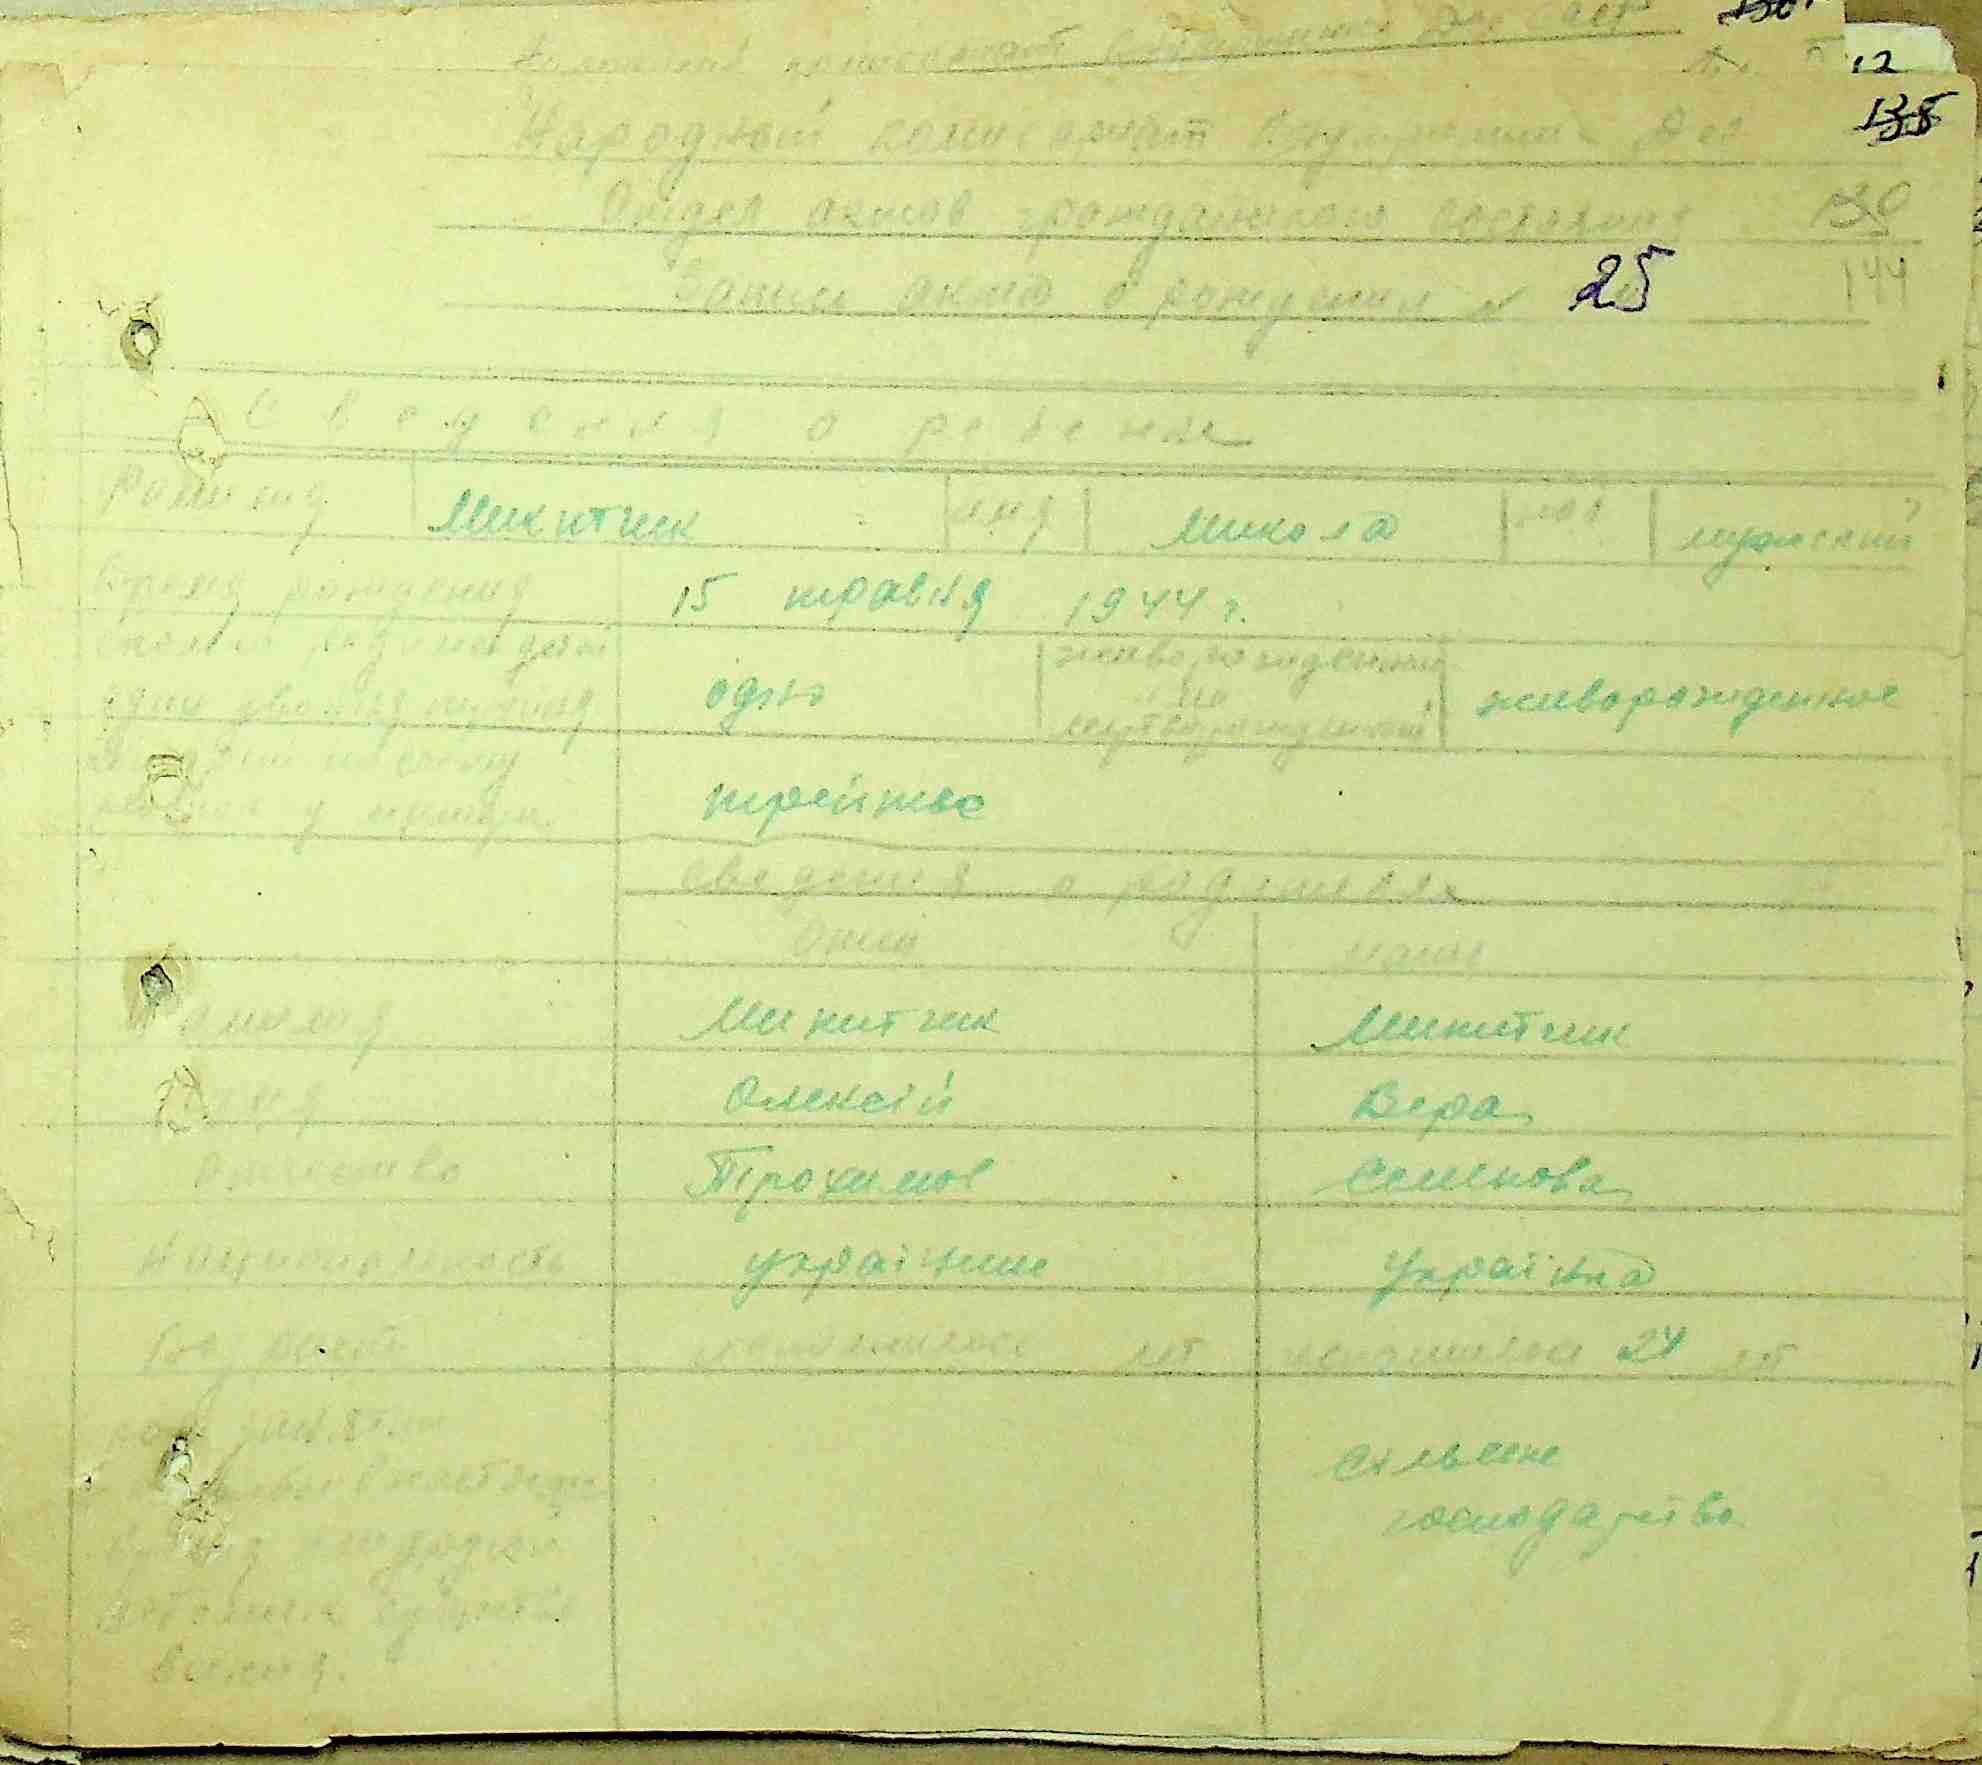 Народный комиссариат Внутренних Дел
12
135
Народный комиссариат Внутренних Дел
Отдел актов гражданского состояния 130
Запись акта о рождении № 25 144
Сведения о ребенке
Фамилия Микитчик имя Микола пол мужский
Время рождения 15 травня 1944 г.
сколько родилось детей
одно двойня тройня одно живорожденный или мертворожденный живорожденное
ребенок у матери третье
Сведения о родителях
Отец мать
Фамилия Микитчик Микитчик
Имя Олексій Вера
Отчество Трохимов Семенова
Национальность українец Українка
Возраст исполнилось лет исполнилось 24 лет
род занятий
Сільське
господарство